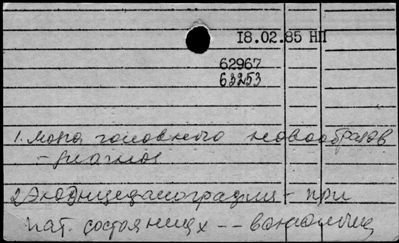 18.02.85 НП
62967
63253
1. мозга головного новообразов
- диагноз
2. Эхоэнцефалография - при
пат. состояниях --